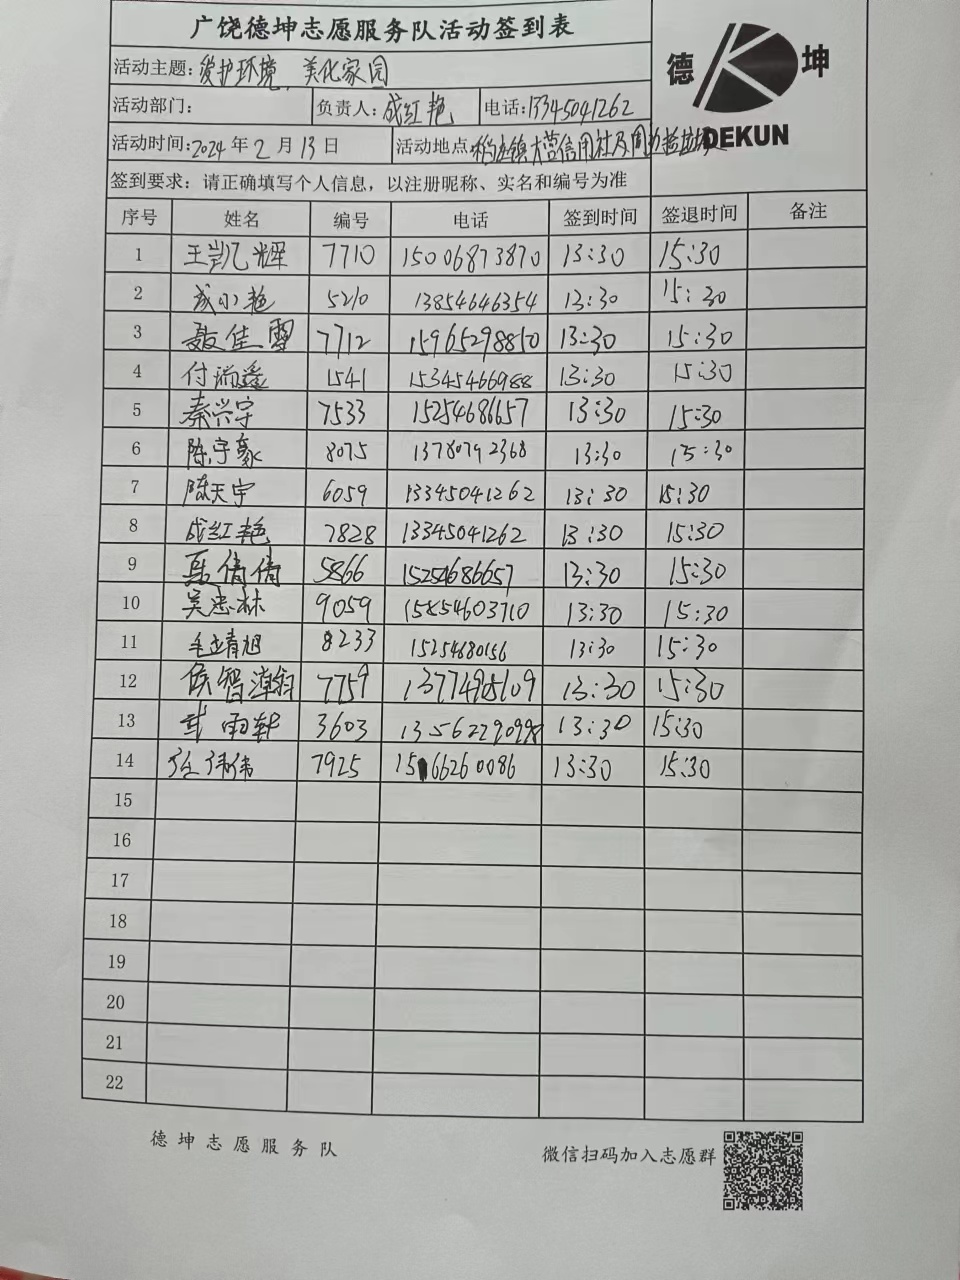 广饶德坤志愿服务队活动签到表
德 坤
DEKUN
活动主题:爱护环境、美化家园
活动部门: 负责人:成红艳 电话:13345041262
活动时间:2024年2月13日 活动地点:稻庄镇大营信用社及周边捡垃圾
签到要求：请正确填写个人信息，以注册昵称、实名和编号为准
序号 姓名 编号 电话 签到时间 签退时间 备注
1 王凯辉 7710 15006873870 13:30 15:30
2 成小艳 5210 13854646354 13:30 15:30
3 聂佳雪 7712 15965298850 13:30 15:30
4 付瑞鑫 1541 15345466988 13:30 15:30
5 秦兴宇 7533 15254686657 13:30 15:30
6 陈宇豪 8075 13780792368 13:30 15:30
7 陈天宇 6059 13345041262 13:30 15:30
8 成红艳 7828 13345041262 13:30 15:30
9 聂倩倩 5866 15254686657 13:30 15:30
10 吴忠林 9059 15854603710 13:30 15:30
11 毛立靖旭 8233 15254680156 13:30 15:30
12 侯智 7759 13:30 15:30
13 雨轩 3603 13:30 15:30
14 任伟伟 7925 15 66260086 13:30 15:30
15
16
17
18
19
20
21
22
德坤志愿服务队
微信扫码加入志愿群